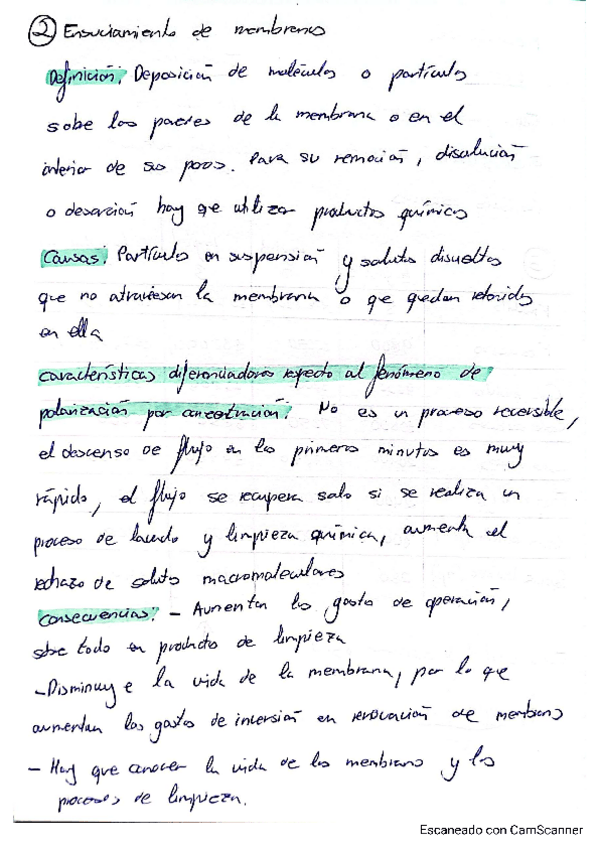 ② Ensuciamiento de membranas
Definición: Deposición de moléculas o partículas
sobe las paredes de la membrana o en el
interior de sus poros. Para su remoción, disolución
o desorción hay que utilizar productos químicos
Causas: Partículas en suspensión y solutos disueltos
que no atraviesan la membrana o que quedan retenidos
en ella
características diferenciadoras respecto al fenómeno de
polarización por concentración: No es un proceso reversible,
el descenso de flujo en los primeros minutos es muy
rápido, el flujo se recupera solo si se realiza un
proceso de lavado y limpieza química, aumenta el
rechazo de soluto macromoleculares
consecuencias: - Aumentan los gastos de operación,
sobe todo en productos de limpieza
- Disminuye la vida de la membrana, por lo que
aumentan los gastos de inversión en renovación de membranas
- Hay que conocer la vida de las membranas y los
procesos de limpieza.
Escaneado con CamScanner